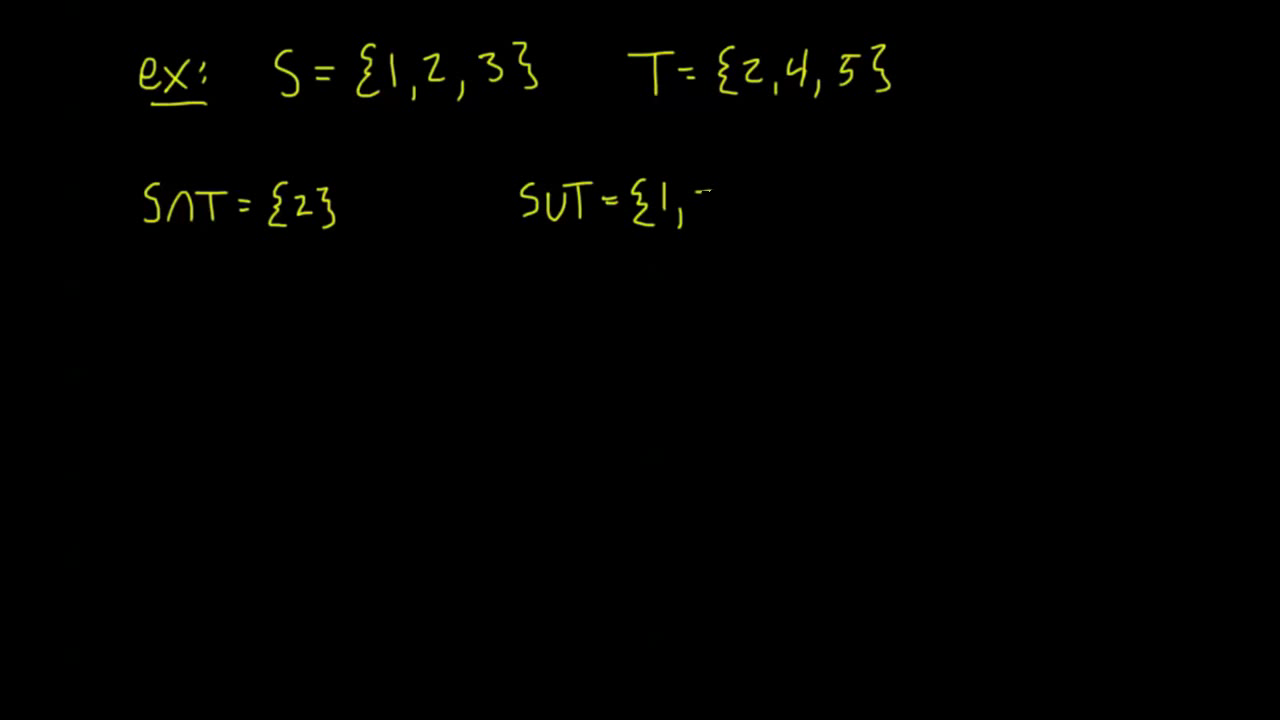 ex: S = {1,2,3} T = {2,4,5}
S∩T = {2} S∪T = {1,